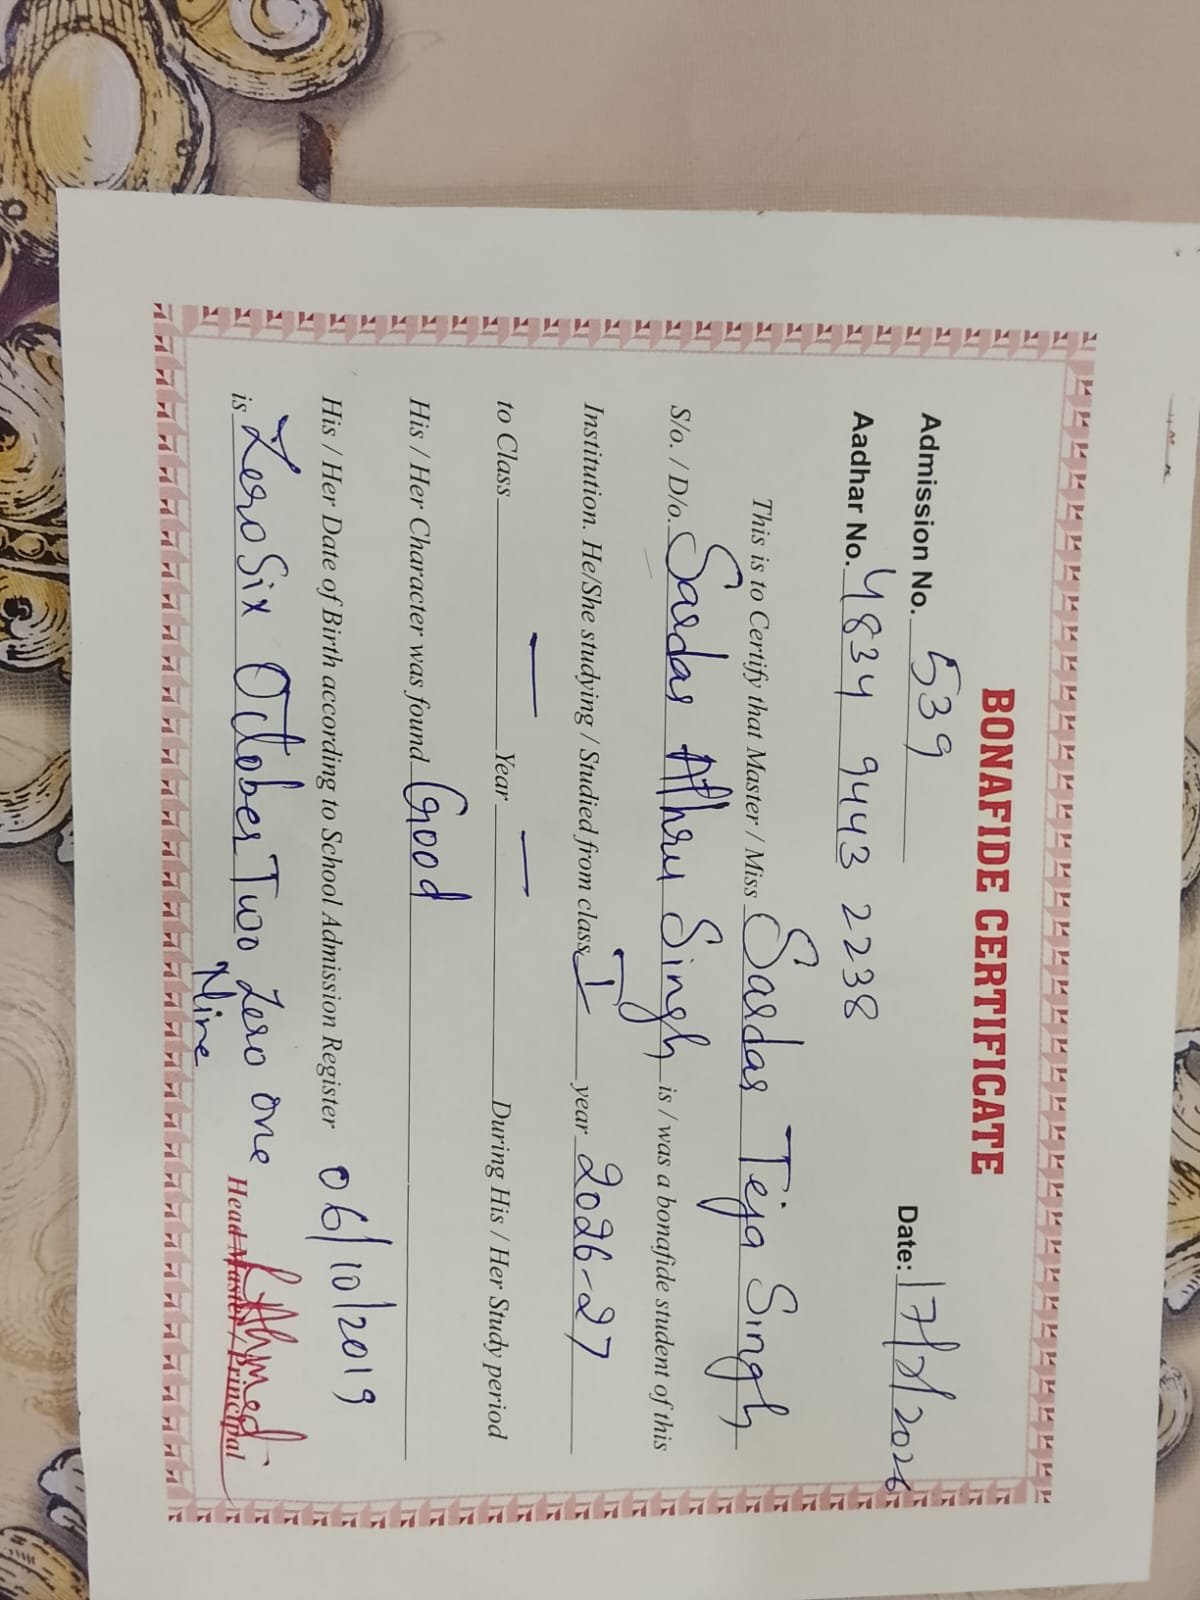 BONAFIDE CERTIFICATE
Admission No. 539 Date: 17/2/2026
Aadhar No. 4834 9443 2238
This is to Certify that Master / Miss Sardar Teja Singh
S/o. / D/o. Sardar Athru Singh is / was a bonafide student of this
Institution. He/She studying / Studied from class I year 2026-27
to Class — Year — During His / Her Study period
His / Her Character was found Good
His / Her Date of Birth according to School Admission Register 06/10/2019
is Zero Six October Two Zero one
Nine
Head Master / Principal